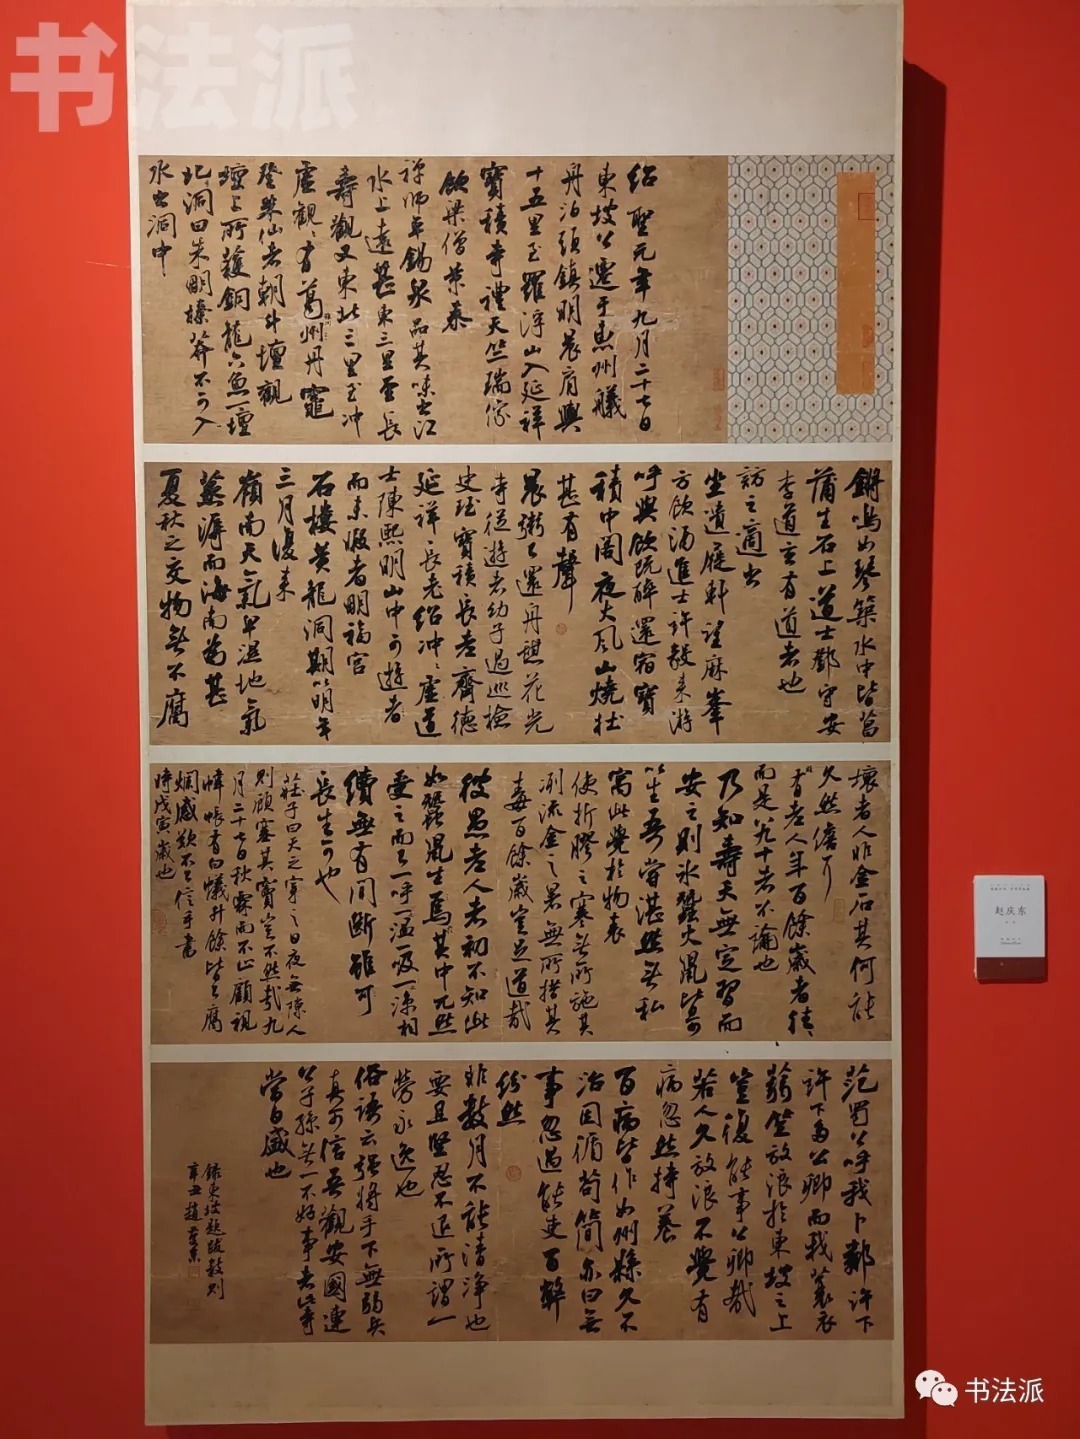 书法派
紹聖元年九月二十七日
東坡公遷于惠州艤
舟泊頭鎮明晨肩輿
十五里至羅浮山入延祥
寶積寺禮天竺瑞像
飲梁僧景泰
禪師卓錫泉品其味出江
水上遠甚東三里至長
壽觀又東北三里至冲
虛觀、有葛州丹竈
登朱仙者朝斗壇觀
壇上所獲銅龍六魚一壇
北洞曰朱明榛莽不可入
水出洞中
鏘鳴如琴築水中皆菖
蒲生石上道士鄧守安
李道玄有道者也
訪之適出
坐遺屐軒望麻峯
方飲酒進士許毅来游
呼與飲既醉還宿寶
積中閣夜大風山燒壯
甚有聲
晨粥已還舟憩花光
寺從遊者幼子過巡檢
史珏寶積長老齊德
延祥長老紹冲、虛道
士陳熙明山中可遊者
而未暇者明福宮
石樓黃龍洞期以明年
三月復来
嶺南天氣卑濕地氣
蒸溽而海南為甚
夏秋之交物無不腐
壞者人非金石其何能
久然儋耳
有老人年百餘歲者往
而是八九十者不論也
乃知壽夭無定習而
安之則冰蠶火鼠皆可
以生吾嘗湛然無私
寓此覺於物表
使折膠之寒無所施其
冽流金之暑無所措其
毒百餘歲豈足道哉
彼愚老人者初不知此
如蠶鼠生焉其中兀然
受之而已一呼一溫一吸一涼相
續無有間斷雖可
長生可也
莊子曰天之穿之日夜無隙人
則顧塞其竇豈不然哉九
月二十七日秋霖雨不止顧視
幃帳有白蟻升餘皆已腐
爛感歎不已信手書
時戊寅歲也
范蜀公呼我卜鄰許下
許下多公卿而我蓑衣
蒻笠放浪於東坡之上
豈復能事公卿哉
若人久放浪不覺有
病忽然持養
百病皆作如州縣久不
治因循苟簡亦曰無
事忽遇能吏百弊
紛然
非數月不能清淨也
要且堅忍不退所謂一
勞永逸也
俗語云強將手下無弱兵
真可信吾觀安國連
公子孫無一不好事者此寺
當日盛也
錄東坡題跋數則
辛丑趙慶東
赵庆东
书法派